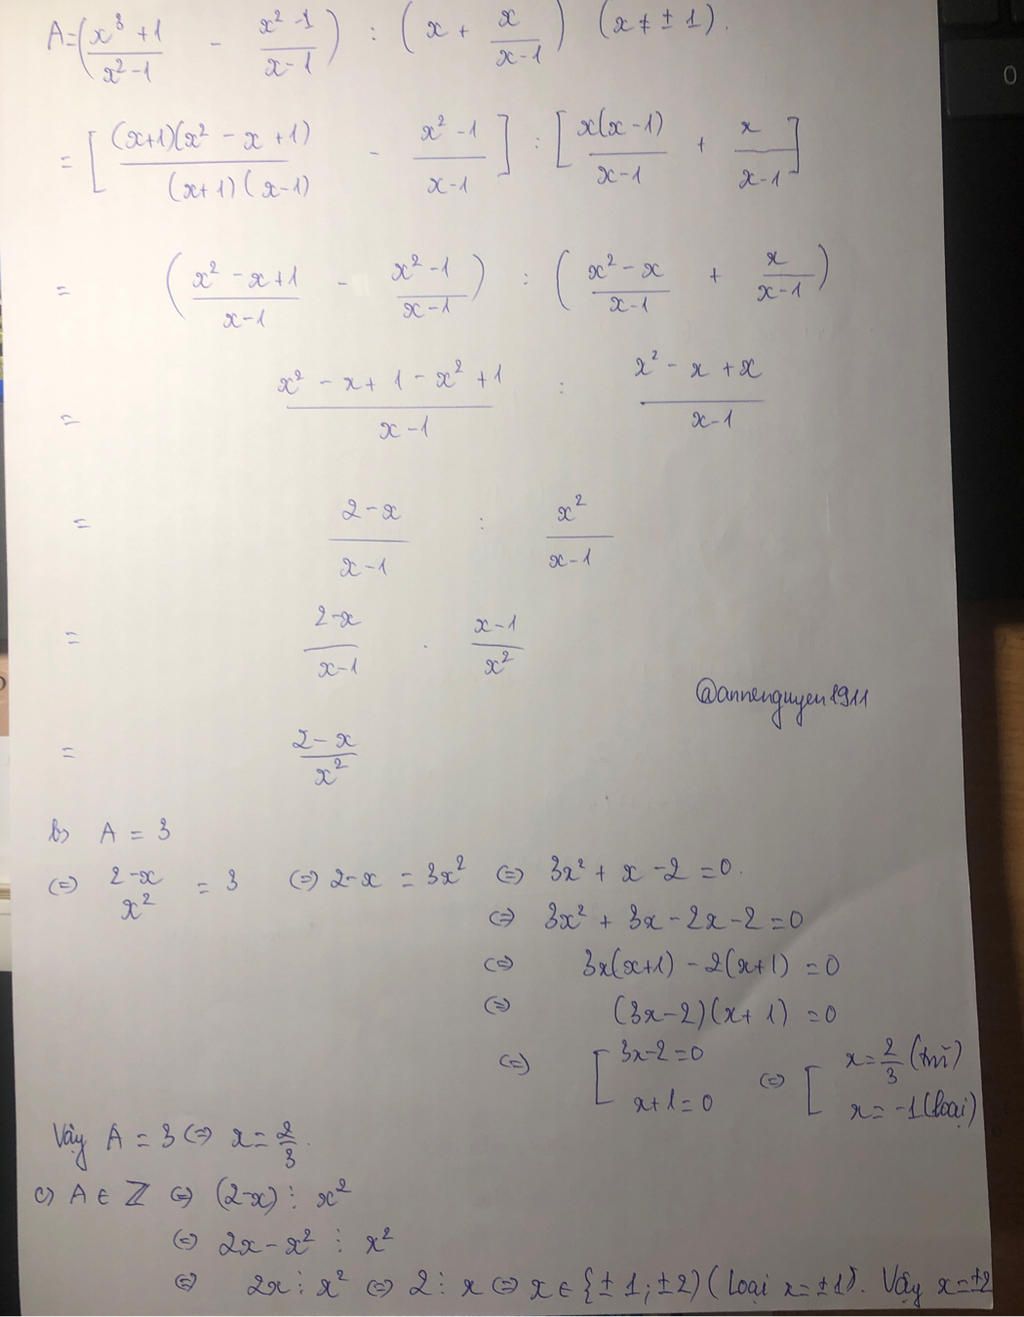 A=(x³+1/x²-1 - x²-1/x-1) : (x + x/x-1) (x ≠ ± 1).
= [(x+1)(x² - x +1)/(x+1)(x-1) - x²-1/x-1] : [x(x-1)/x-1 + x/x-1]
= (x² -x+1/x-1 - x²-1/x-1) : (x²-x/x-1 + x/x-1)
= x² -x+1-x²+1/x-1 : x² - x +x/x-1
= 2-x/x-1 : x²/x-1
= 2-x/x-1 . x-1/x²
@annenguyen1911
= 2-x/x²
b) A = 3
(=) 2-x/x² = 3 (=) 2-x = 3x² (=) 3x² + x -2 =0.
(=) 3x² + 3x - 2x - 2 =0
(=) 3x(x+1) - 2(x+1) =0
(=) (3x-2)(x+1) =0
(=) [3x-2=0 (=) [x=2/3 (tm)
x+1=0 x= -1 (loại)
Vậy A = 3 (=) x= 2/3.
c) A ∈ ℤ (=) (2-x) ⋮ x²
(=) 2x - x² ⋮ x²
(=) 2x ⋮ x² (=) 2 ⋮ x (=) x ∈ {±1; ±2) (loại x=±1). Vậy x=±2